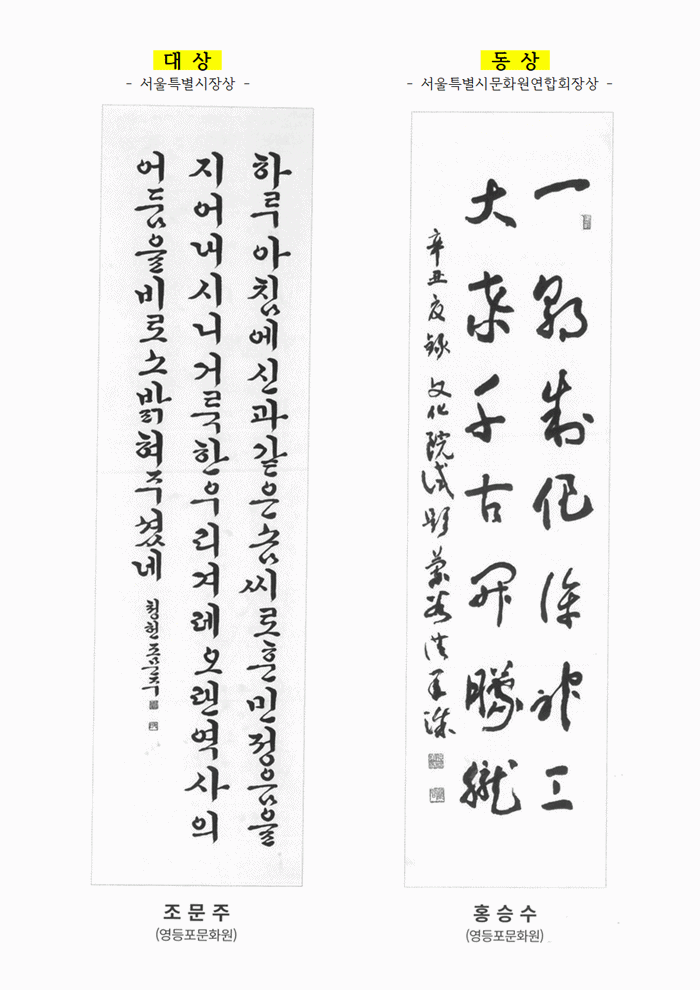 대 상
- 서울특별시장상 -
하루아침에신과같은솜씨로훈민정음을
지어내시니거룩한우리겨레오랜역사의
어둠을비로소밝혀주셨네
청헌조문주
조 문 주
(영등포문화원)
동 상
- 서울특별시문화원연합회장상 -
一朝制作侔神工
大東千古開朦朧
辛丑夏錄 文化院
홍 승 수
(영등포문화원)